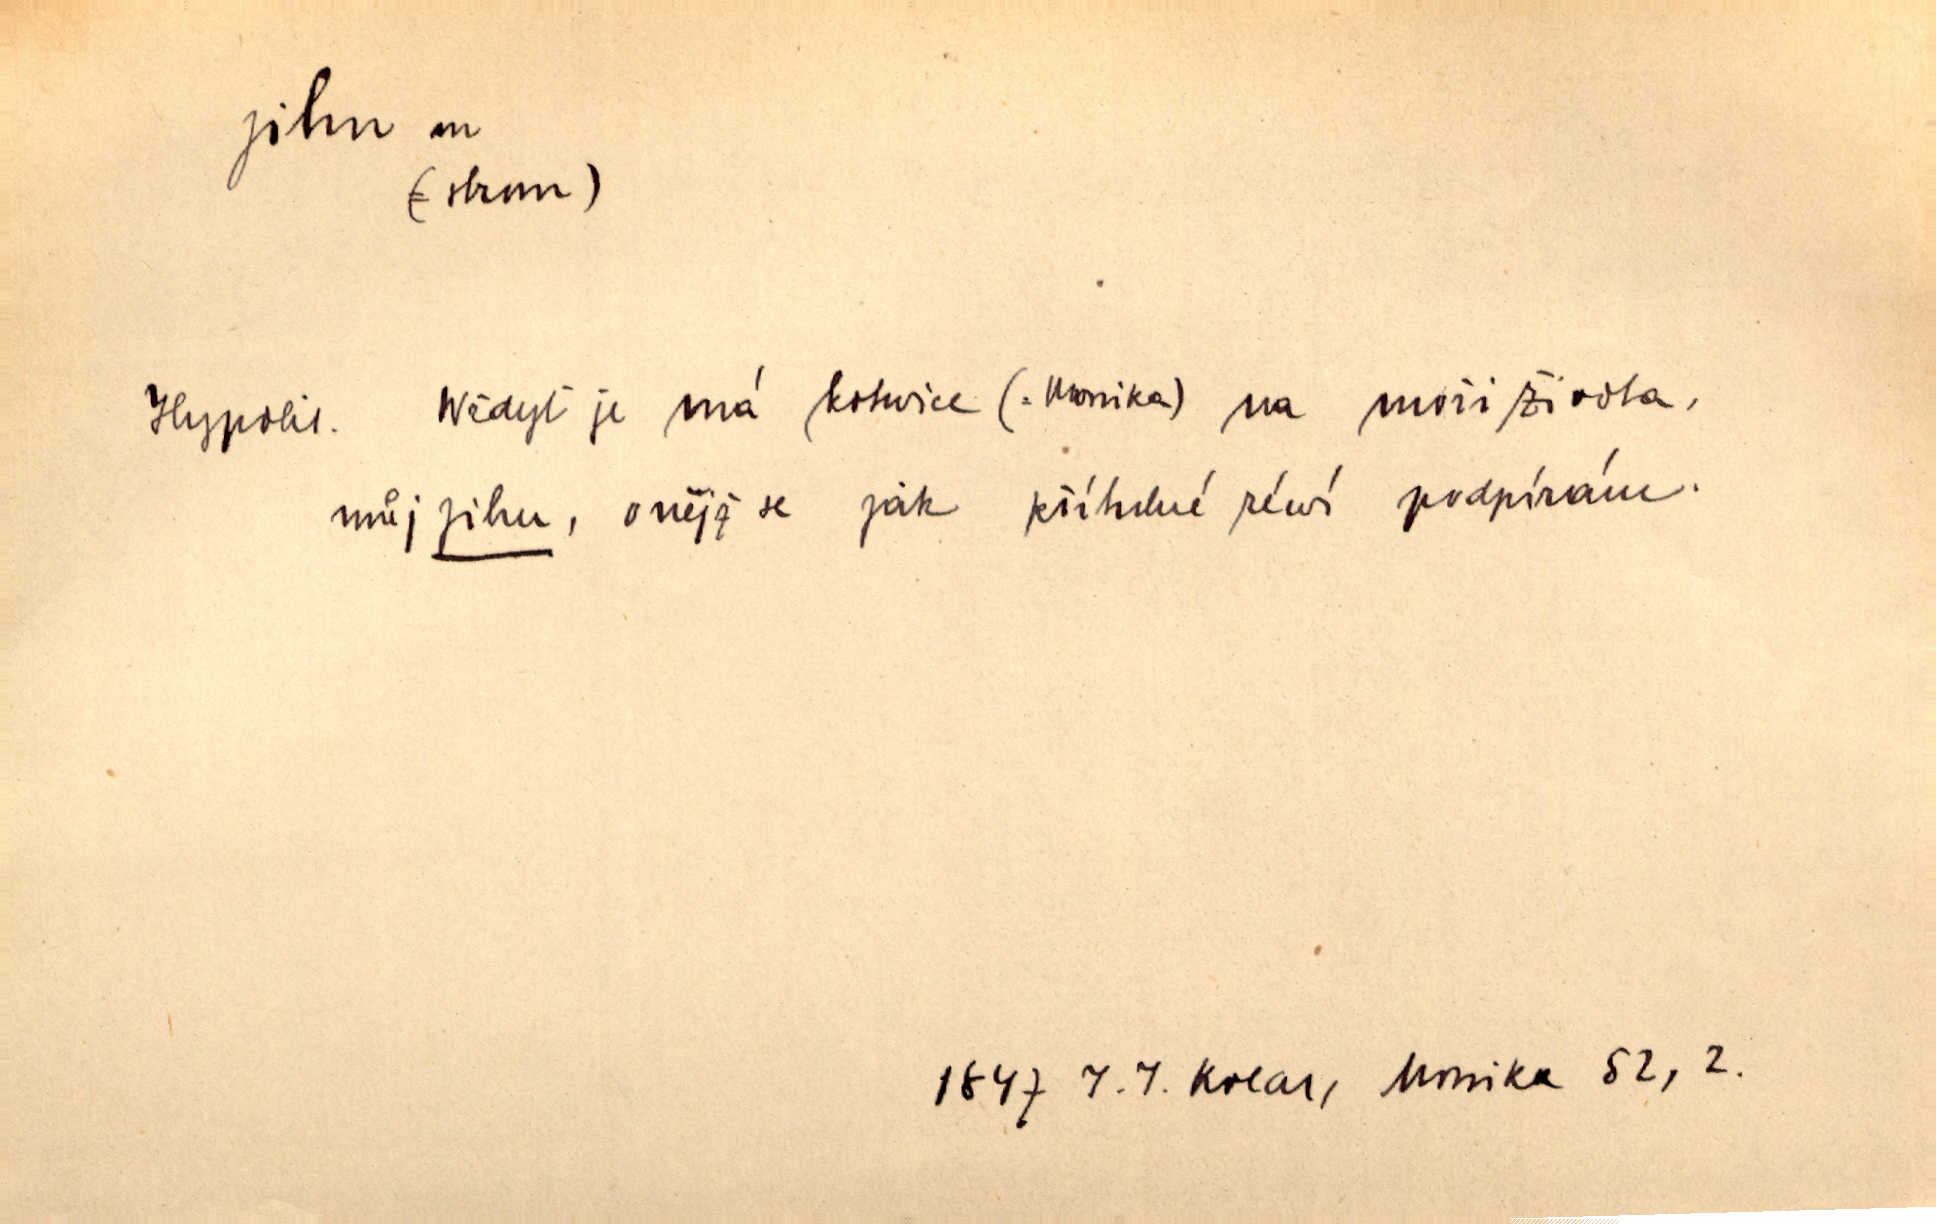 jilm m
(= strom)
Hypolit. Wědyť je má kotwice (= Monika) na moři života,
můj jilm, o nějž se jak křehké réwí podpírám.
1847 J. J. Kolar, Monika 52, 2.